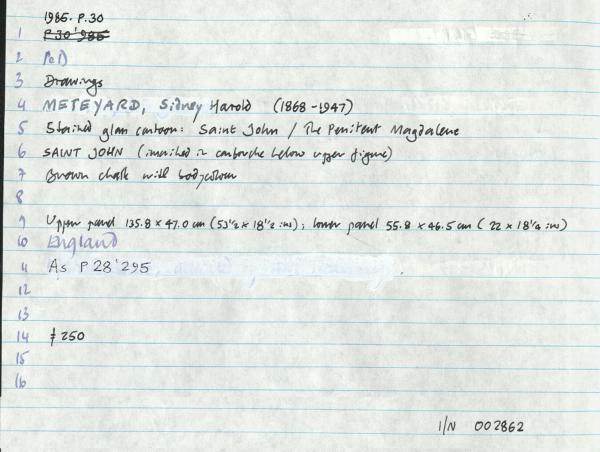 1985. P.30
1 P.30'985
2 P&D
3 Drawings
4 METEYARD, Sidney Harold (1868-1947)
5 Stained glass cartoon: Saint John / The Penitent Magdalene
6 SAINT JOHN (inscribed in cartouche below upper figure)
7 Brown chalk with bodycolour
8
9 Upper panel 135.8 x 47.0 cm (53 1/2 x 18 1/2 ins); lower panel 55.8 x 46.5 cm (22 x 18 1/4 ins)
10 England
11 As P 28'295
12
13
14 £250
15
16
I/N 002862